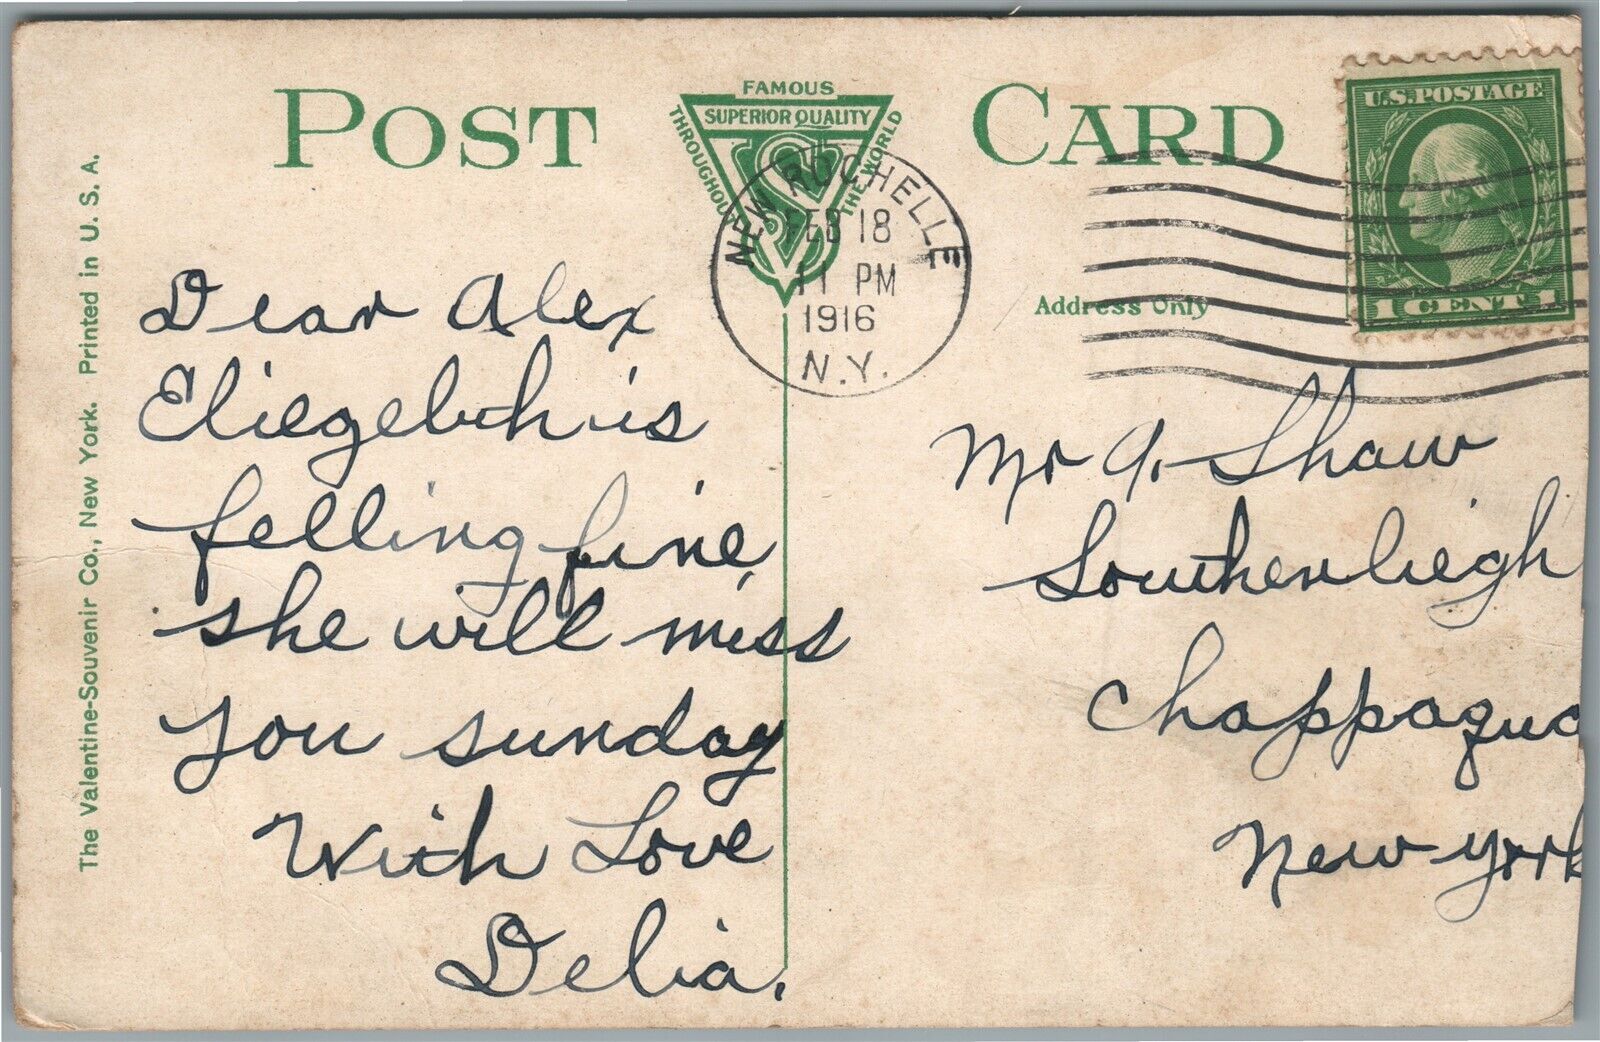 POST CARD
FAMOUS
SUPERIOR QUALITY
THROUGHOUT THE WORLD
NEW ROCHELLE
FEB 18
11 PM
1916
N.Y.
U.S. POSTAGE
1 CENT 1
Address Only
The Valentine-Souvenir Co., New York. Printed in U. S. A.
Dear Alex
Eliegebth is
felling fine
she will miss
you sunday
With Love
Delia.
Mr A. Shaw
Southenliegh
Chappaqua
New York